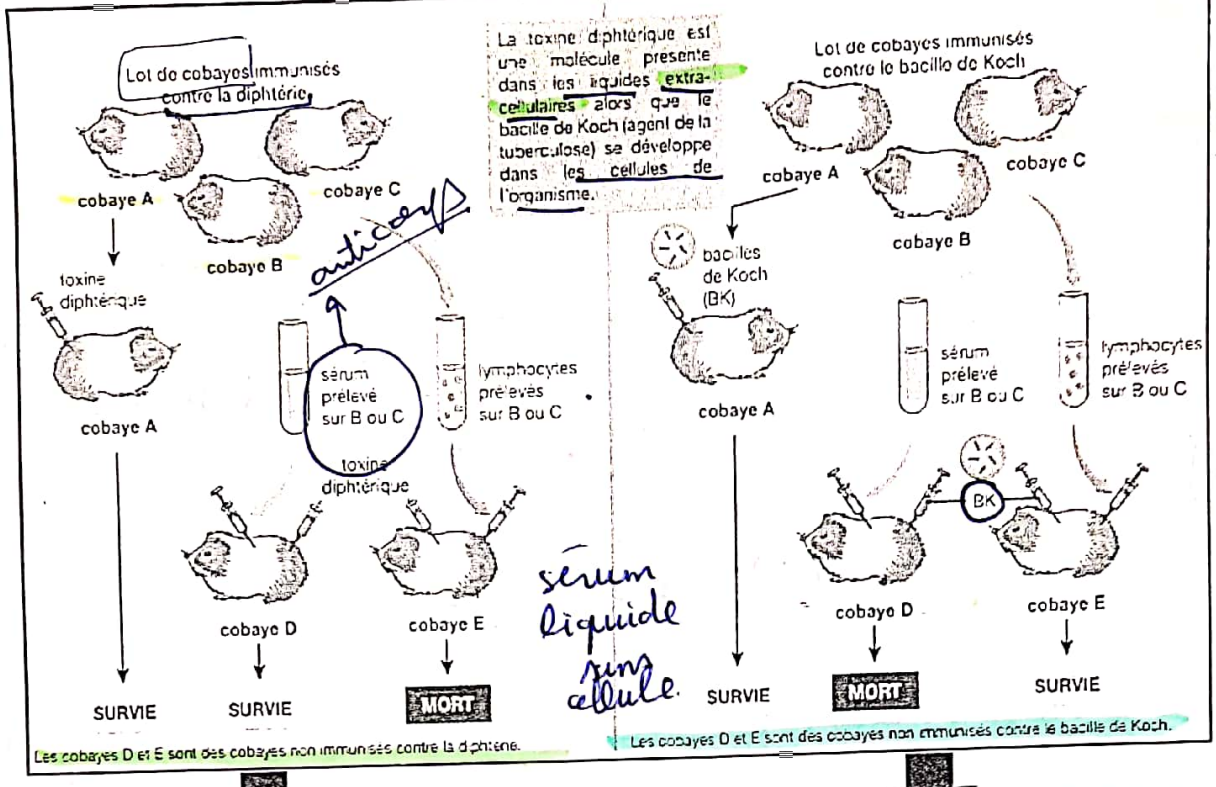 Lot de cobayes immunisés
contre la diphtérie
cobaye A
cobaye C
cobaye B
anticorps
toxine
diphtérique
cobaye A
sérum
prélevé
sur B ou C
lymphocytes
prélevés
sur B ou C
toxine
diphtérique
cobaye D
cobaye E
SURVIE
SURVIE
MORT
Les cobayes D et E sont des cobayes non immunisés contre la diphtérie.
La toxine diphtérique est
une molécule présente
dans les liquides extra-
cellulaires alors que le
bacille de Koch (agent de la
tuberculose) se développe
dans les cellules de
l'organisme.
sérum
liquide
sans
cellule.
Lot de cobayes immunisés
contre le bacille de Koch
cobaye A
cobaye C
cobaye B
bacilles
de Koch
(BK)
cobaye A
sérum
prélevé
sur B ou C
lymphocytes
prélevés
sur B ou C
BK
cobaye D
cobaye E
SURVIE
MORT
SURVIE
Les cobayes D et E sont des cobayes non immunisés contre le bacille de Koch.